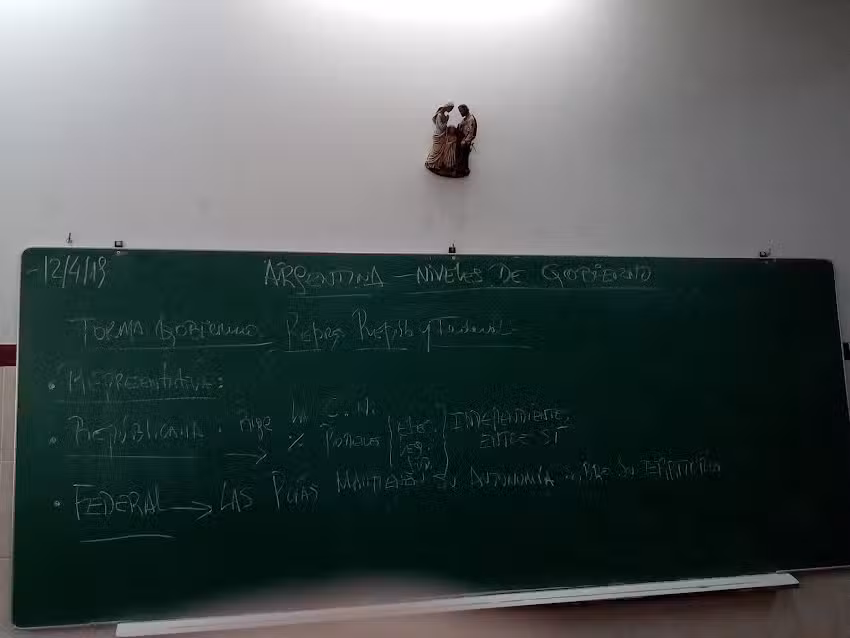 -12/4/19 ARGENTINA - NIVELES DE GOBIERNO
FORMA GOBIERNO Repre. Repúb y Federal
• REPRESENTATIVA:
• REPÚBLICANA: rige la C.N.
→ % PODERES EJEC. INDEPENDIENTE
ENTRE SÍ
• FEDERAL → LAS PCIAS MANTIENEN SU AUTONOMÍA SOBRE SU TERRITORIO